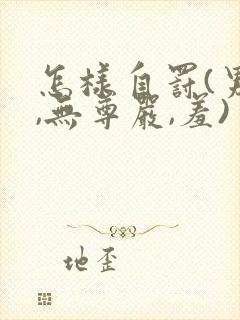 怎様自罰(男
,無尊嚴,羞)
地歪